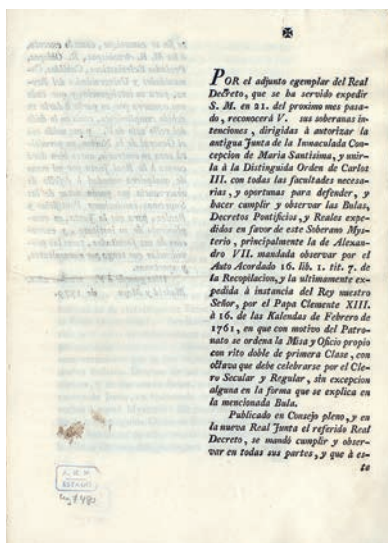 POR el adjunto egemplar del Real
Decreto, que se ha servido expedir
S. M. en 21. del proximo mes pasa-
do, reconocerá V. sus soberanas in-
tenciones, dirigidas á autorizar la
antigua Junta de la Inmaculada Con-
cepcion de Maria Santisima, y unir-
la á la Distinguida Orden de Carlos
III. con todas las facultades necesa-
rias, y oportunas para defender, y
hacer cumplir y observar las Bulas,
Decretos Pontificios, y Reales expe-
didos en favor de este Soberano Mys-
terio, principalmente la de Alexan-
dro VII. mandada observar por el
Auto Acordado 16. lib. 1. tit. 7. de
la Recopilacion, y la ultimamente ex-
pedida á instancia del Rey nuestro
Señor, por el Papa Clemente XIII.
á 16. de las Kalendas de Febrero de
1761, en que con motivo del Patro-
nato se ordena la Misa y Oficio propio
con rito doble de primera Clase, con
octava que debe celebrarse por el Cle-
ro Secular y Regular, sin excepcion
alguna en la forma que se explica en
la mencionada Bula.
Publicado en Consejo pleno, y en
la nueva Real Junta el referido Real
Decreto, se mandó cumplir y obser-
var en todas sus partes, y que á es-
te